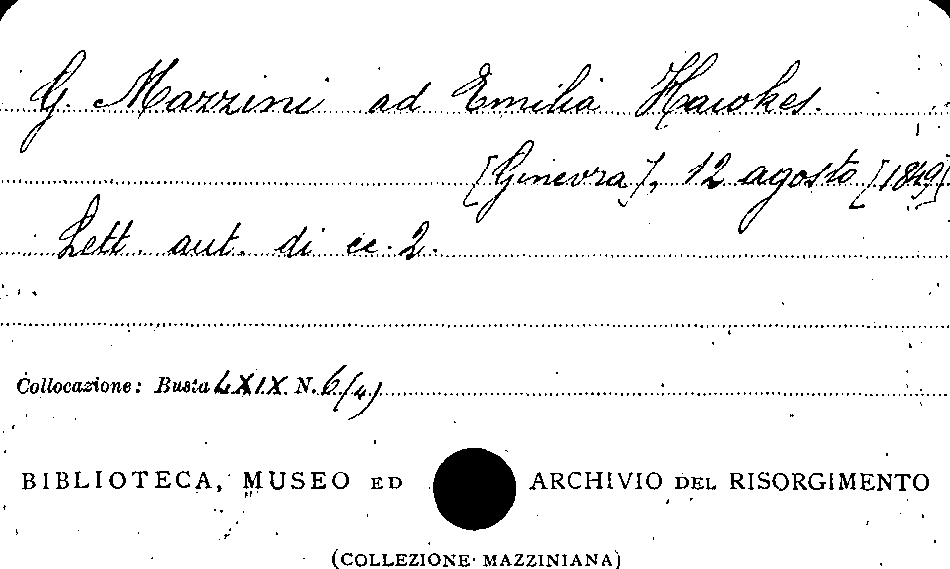 G. Mazzini ad Emilia Hawkes.
[Ginevra], 12 agosto [1849].
Lett. aut. di cc. 2.
Collocazione: Busta LXIX N. 6(4)
BIBLIOTECA, MUSEO ED ARCHIVIO DEL RISORGIMENTO
(COLLEZIONE MAZZINIANA)